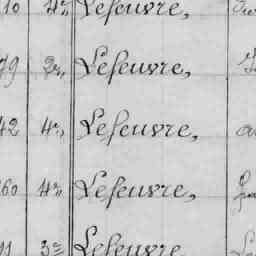 10 4º Lefeuvre,
79 2º Lefeuvre,
42 4º, Lefeuvre,
60 4º Lefeuvre,
11 3º Lefeuvre